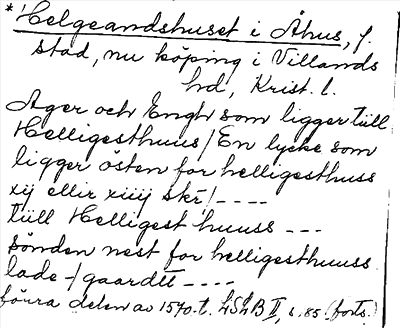 * Helgeandshuset i Åhus, f.
stad, nu köping i Villands
hd, Krist. l.
Ager och Engh som ligger tüll
Helligesthuus / En lycke som
ligger östen for helligesthuss
xij ellir xiiij skr̄ / - - - -
tüll Helligest huuss - - -
sönden nest for helligesthuuss
lade - / gaardtt - - - -
förra delen av 1570-t. LSLB II, s. 85 (forts.)